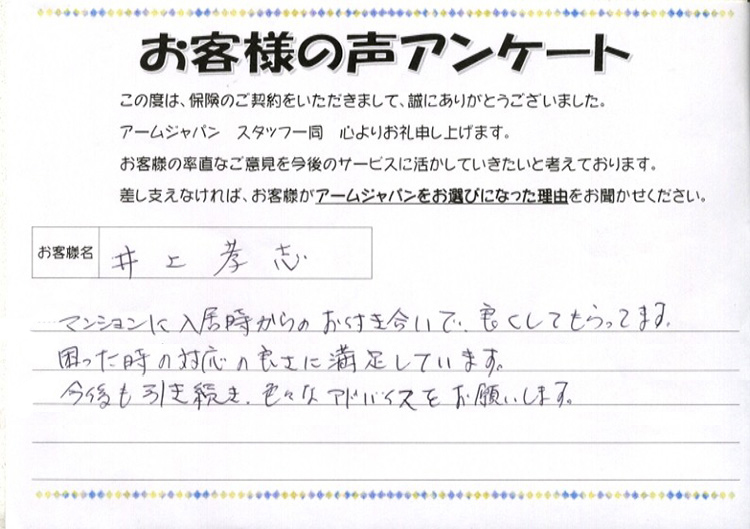 お客様の声アンケート
この度は、保険のご契約をいただきまして、誠にありがとうございました。
アームジャパン　スタッフ一同　心よりお礼申し上げます。
お客様の率直なご意見を今後のサービスに活かしていきたいと考えております。
差し支えなければ、お客様がアームジャパンをお選びになった理由をお聞かせください。
お客様名　井上孝志
マンションに入居時からのお付き合いで、良くしてもらってます。
困った時の対応の良さに満足しています。
今後も引き続き、色々なアドバイスをお願いします。